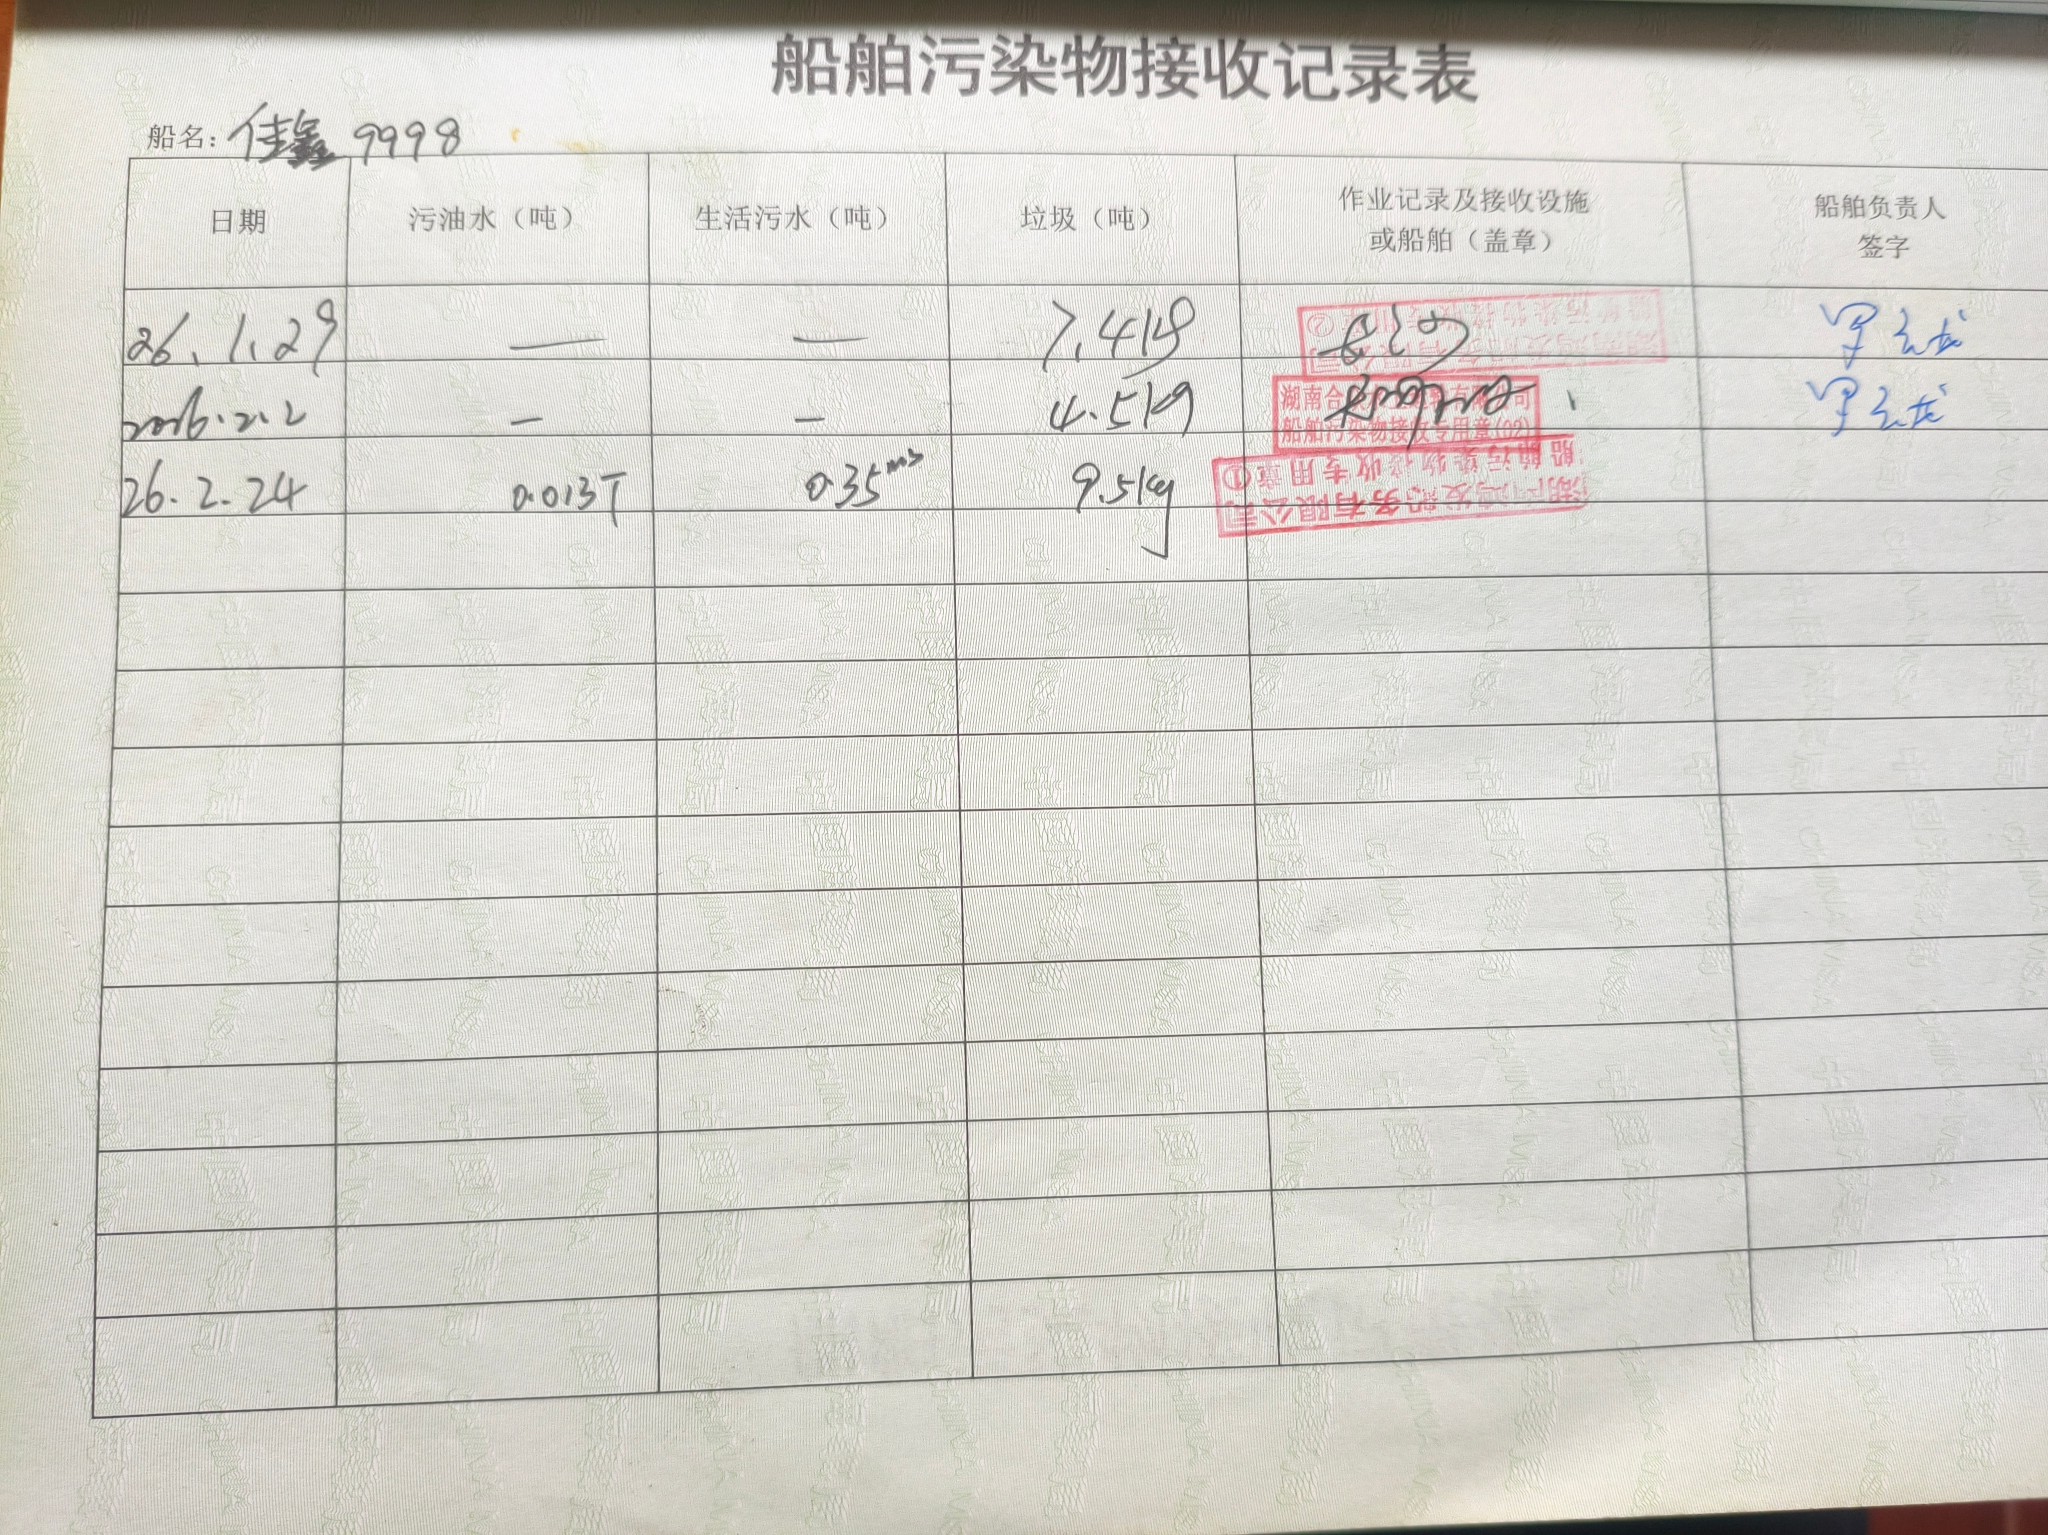 船舶污染物接收记录表
船名：佳鑫 9998
日期 污油水（吨） 生活污水（吨） 垃圾（吨） 作业记录及接收设施或船舶（盖章） 船舶负责人签字
26.1.29 — — 7.4kg
2026.2.2 — — 4.5kg
湖南合
船舶污染物接收专用章(02)
26.2.24 0.013T 0.35m3 9.5kg
船舶污染物接收专用章①
务有限公司